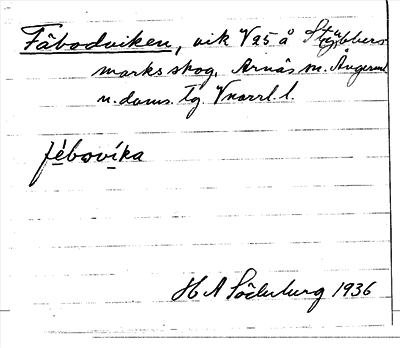 Fäbodviken, vik V 25 å Stybbers
marks skog, Arnäs sn. Ångerml
n. doms. tg. Vnorrl. l.
fèbovíka
H A Söderburg 1936